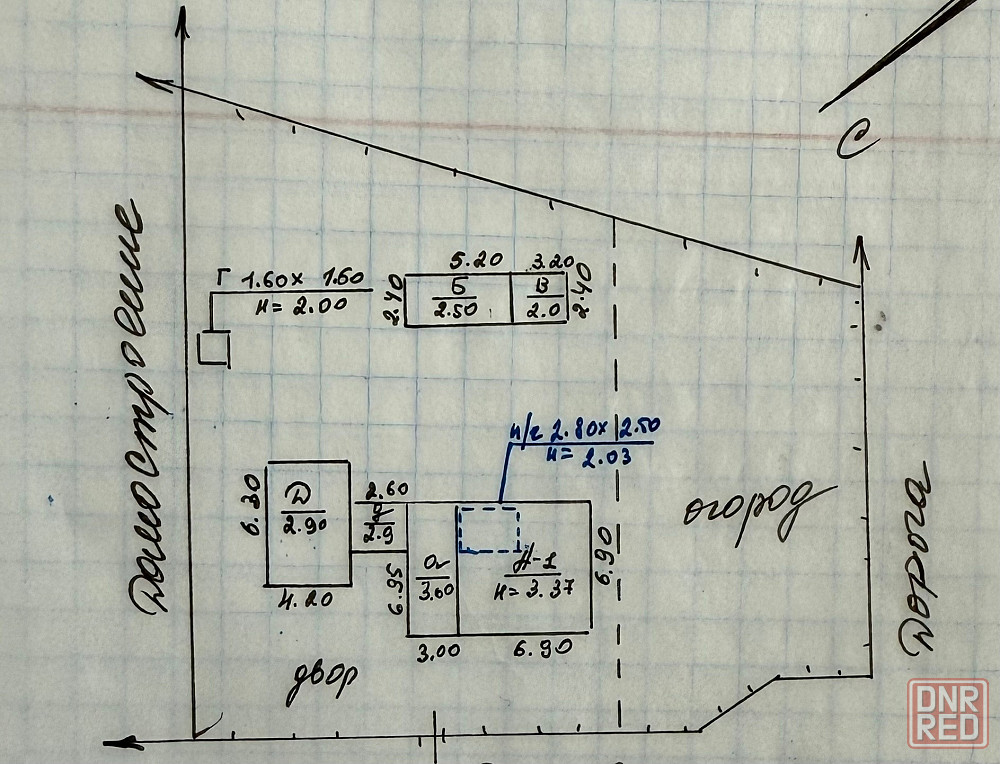 С
Домостроение
Г 1.60 х 1.60
н = 2.00
5.20
3.20
2.40
Б
2.50
В
2.0
2.40
п/г 2.80 х 2.50
н = 2.03
огород
Дорога
6.30
Д
2.90
4.20
2.60
2.9
6.95
а
3.60
А-1
н = 3.37
6.90
3.00
6.90
двор
DNR
RED